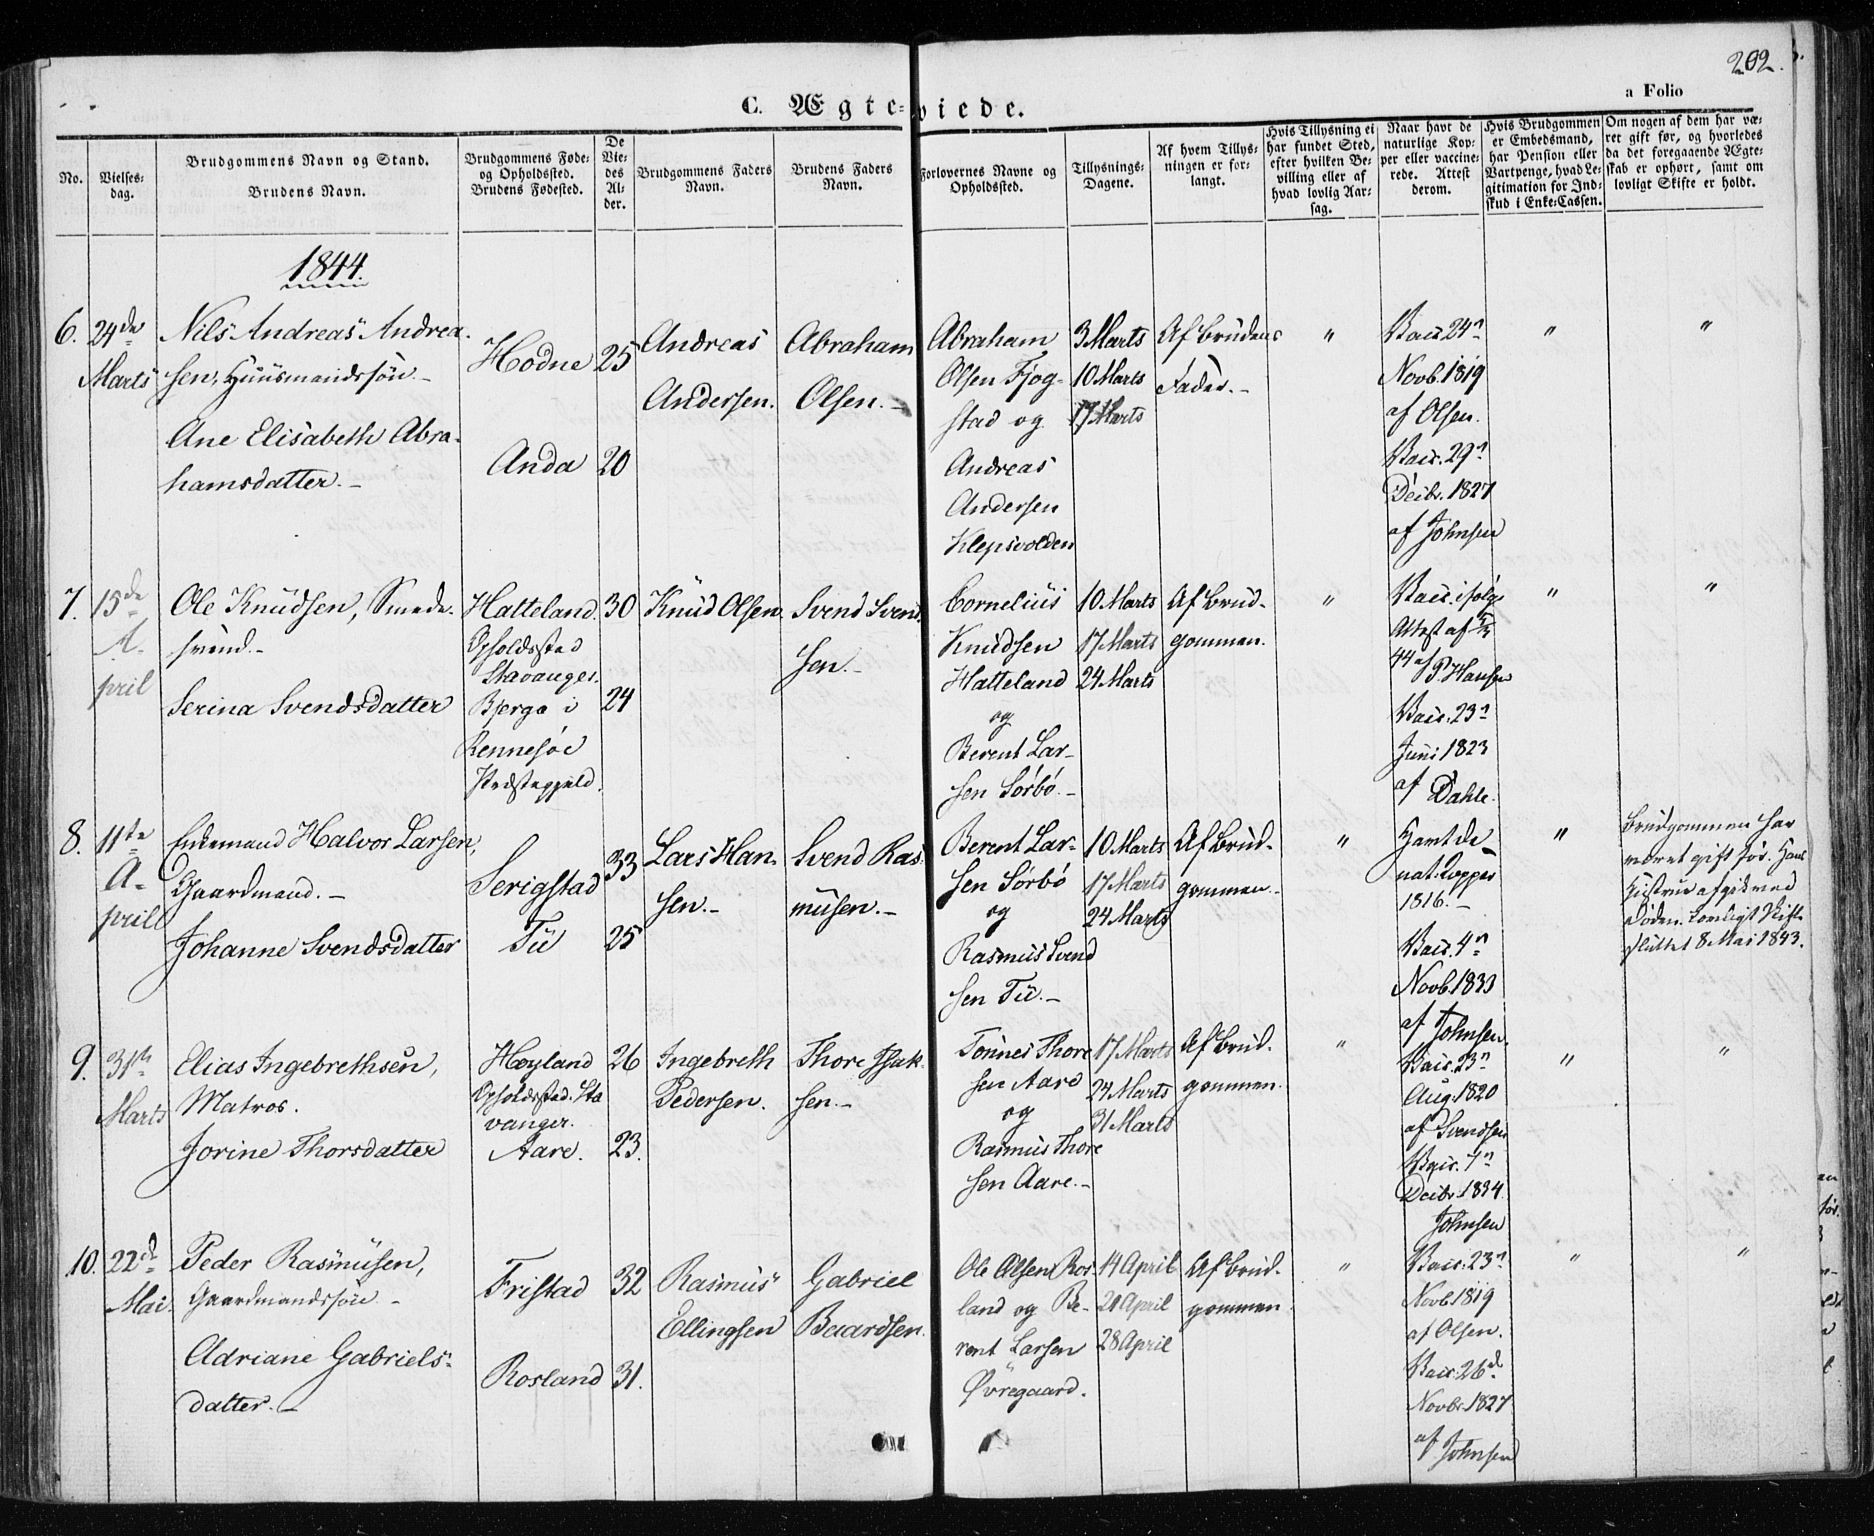 202.
a Folio
C. Ægte-viede.
No.
Vielses-
dag.
Brudgommens Navn og Stand.
Brudens Navn.
Brudgommens Føde-
og Opholdssted.
Brudens Fødested.
De
Vie-
des
Al-
der.
Brudgommens Faders
Navn.
Brudens Faders
Navn.
Forlovernes Navne og
Opholdssted.
Tillysnings-
Dagene.
Af hvem Tillys-
ningen er for-
langt.
Hvis Tillysning ei
har fundet Sted,
efter hvilken Be-
villing eller af
hvad lovlig Aar-
sag.
Naar havt de
naturlige Kop-
per eller vaccine-
rede. Attest
derom.
Hvis Brudgommen
er Embedsmand,
har Pension eller
Vartpenge, hvad Le-
gitimation for Ind-
skud i Enke-Cassen.
Om nogen af dem har væ-
ret gift før, og hvorledes
da det foregaaende Ægte-
skab er ophørt, samt om
lovligt Skifte er holdt.
1844.
6.
24de
Marts
Nils Andreas Andrea-
sen, Huusmandssøn.-
Ane Elisabeth Abra-
hamsdatter.-
Hodne
Anda
25
20
Andreas
Andersen.
Abraham
Olsen.-
Abraham
Olsen Fjog-
stad og
Andreas
Andersen
Klepsvolden
3 Marts
10 Marts
17 Marts
Af Brudens
Fader.-
"
Vacc. 24n
Novb. 1819
af Olsen.
Vacc. 29n
Decbr. 1827
af Johnsen
"
"
7.
15de
A-
pril
Ole Knudsen, Smede-
svend.-
Serina Svendsdatter
Hatteland.
Opholdssted
Stavanger.
Bjerga i
Rennesøe
Præstegjeld.
30
24
Knud Olsen.
Svend Svend-
sen.-
Cornelius
Knudsen
Hatteland
og
Berent Lar-
sen Sørbø.-
10 Marts
17 Marts
24 Marts
Af Brud-
gommen.
"
Vacc. ifølge
Attest af 5/3
44 af P. Hansen
Vacc. 23n
Juni 1823
af Dahle.
"
"
8.
11te
A-
pril
Enkemand Halvor Larsen,
Gaardmand.-
Johanne Svendsdatter
Serigstad
Tu
33
25
Lars Han-
sen.-
Svend Ras-
musen.-
Berent Lar-
sen Sørbø
og
Rasmus Svend
sen Tu.-
10 Marts
17 Marts
24 Marts
Af Brud-
gommen.-
"
Havt de
nat. Kopper
1816.-
Vacc. 4n
Novb. 1833
af Johnsen.
"
Brudgommen har
været gift før. Hans
Hustru afgik ved
Døden. Lovligt Skifte
sluttet 8 Mai 1843.
9.
31te
Marts
Elias Ingebrethsen,
Matros.
Jorine Thorsdatter
Høyland
Opholdssted Sta
vanger.
Aare.
26
23.
Ingebreth
Pedersen.
Thore Isak-
sen.-
Tønnes Thore
sen Aare
og
Rasmus Thore
sen Aare.-
17 Marts
24 Marts
31 Marts
Af Brud-
gommen.
"
Vacc. 23n
Aug. 1820
af Svendsen
Vacc. 7n
Decbr. 1834
Johnsen
"
"
10.
22d
Mai.
Peder Rasmusen,
Gaardmandssøn.-
Adriane Gabriels-
datter.-
Fristad
Rosland
32
31.
Rasmus
Ellingsen
Gabriel
Baardsen.
Ole Olsen Ros-
land og Be-
rent Larsen
Øvregaard.
14 April
21 April
28 April
Af Brud-
gommen.
"
Vacc. 23n
Novb. 1819
af Olsen.
Vacc. 26d
Novbr. 1827
af Johnsen
"
"